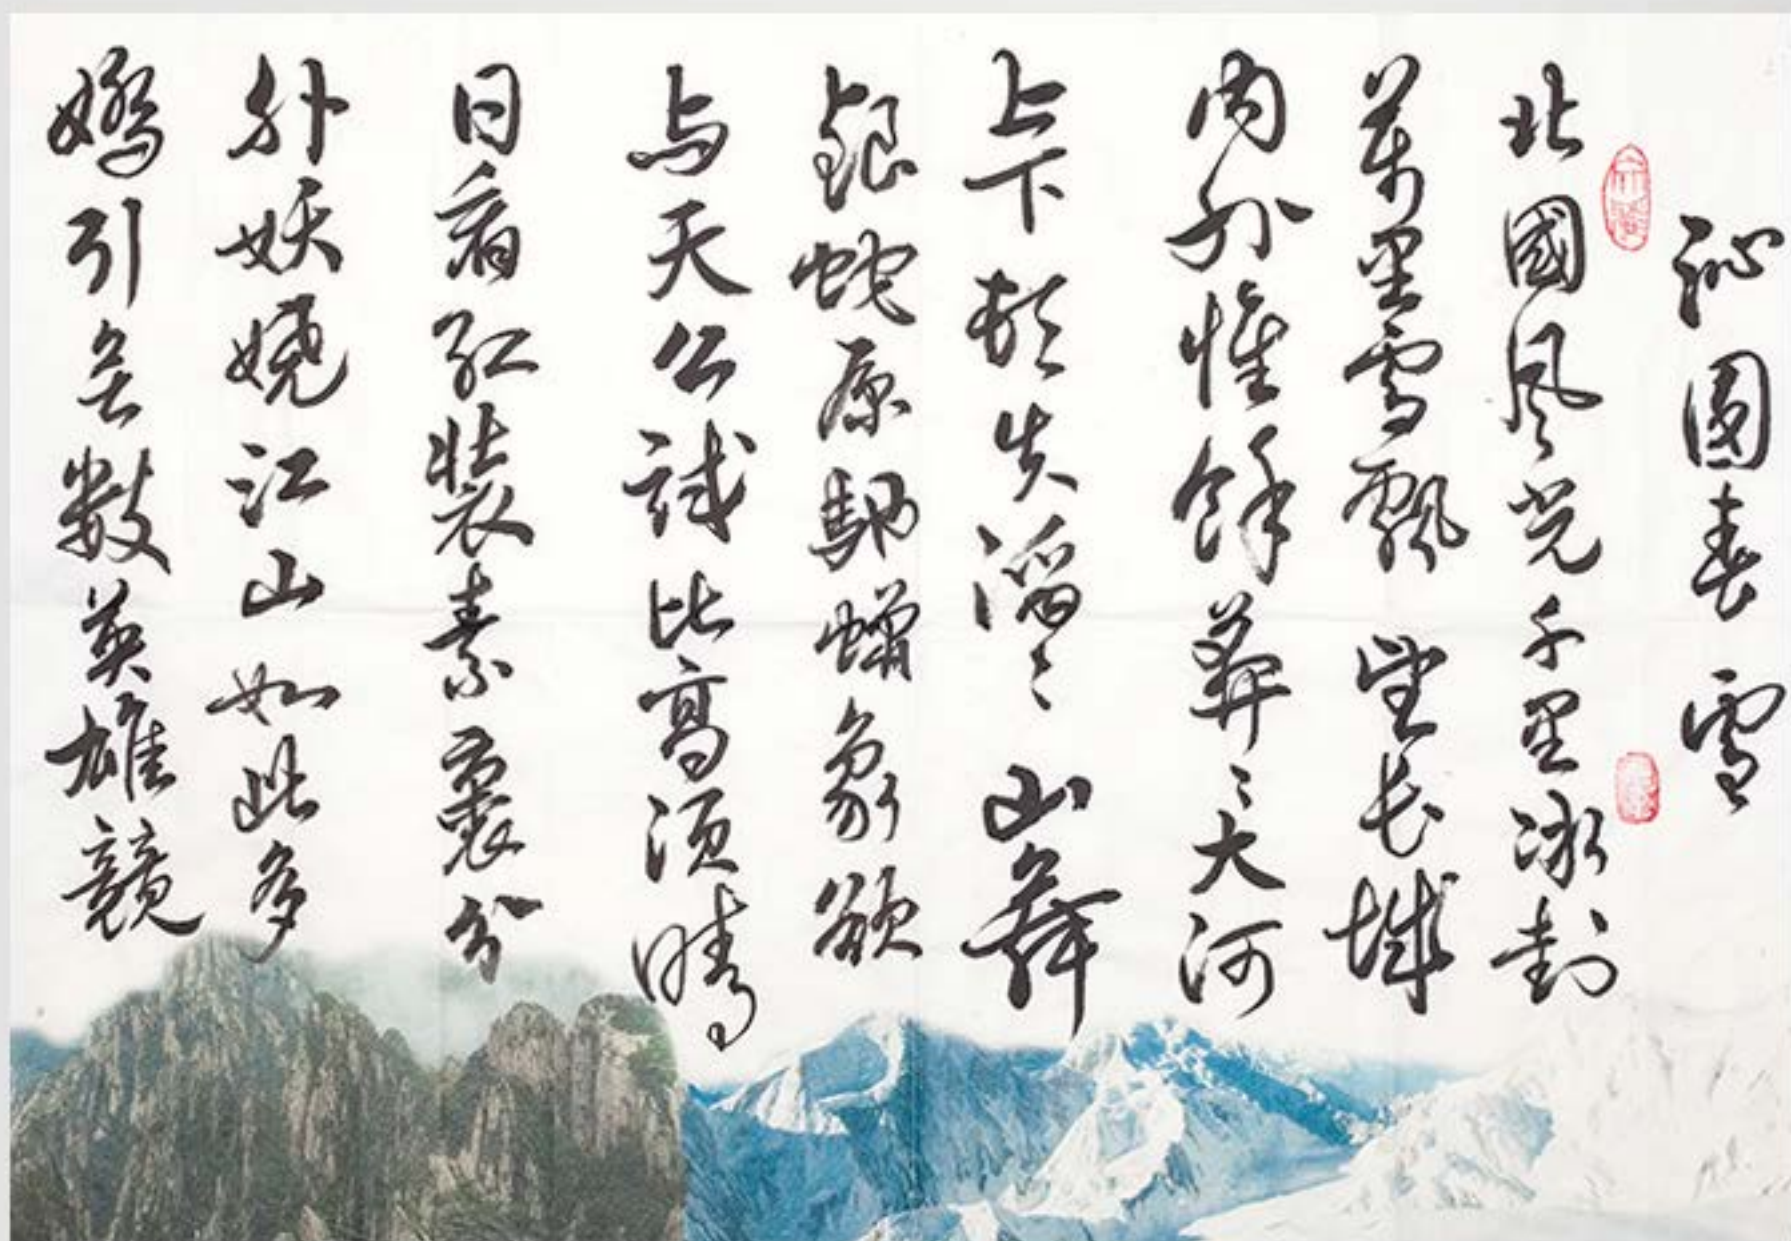 沁園春 雪
北國風光千里冰封
萬里雪飄望长城
内外惟餘莽々大河
上下頓失滔々山舞
銀蛇原馳蠟象欲
与天公試比高須晴
日看紅裝素裹分
外妖嬈江山如此多
嬌引無數英雄競